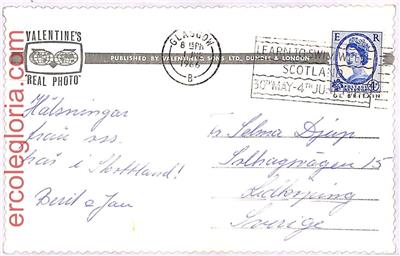 VALENTINE'S
"REAL PHOTO"
PUBLISHED BY VALENTINE & SONS LTD., DUNDEE & LONDON
GLASGOW
1966
B
LEARN TO SWIM WEEK
SCOTLAND
30TH MAY-4TH JUNE
E R
Hälsningar
från oss
här i Skottland!
Berit o Jan
Fr Selma Djup
15
Lidköping
Sverige
ercolegloria.com